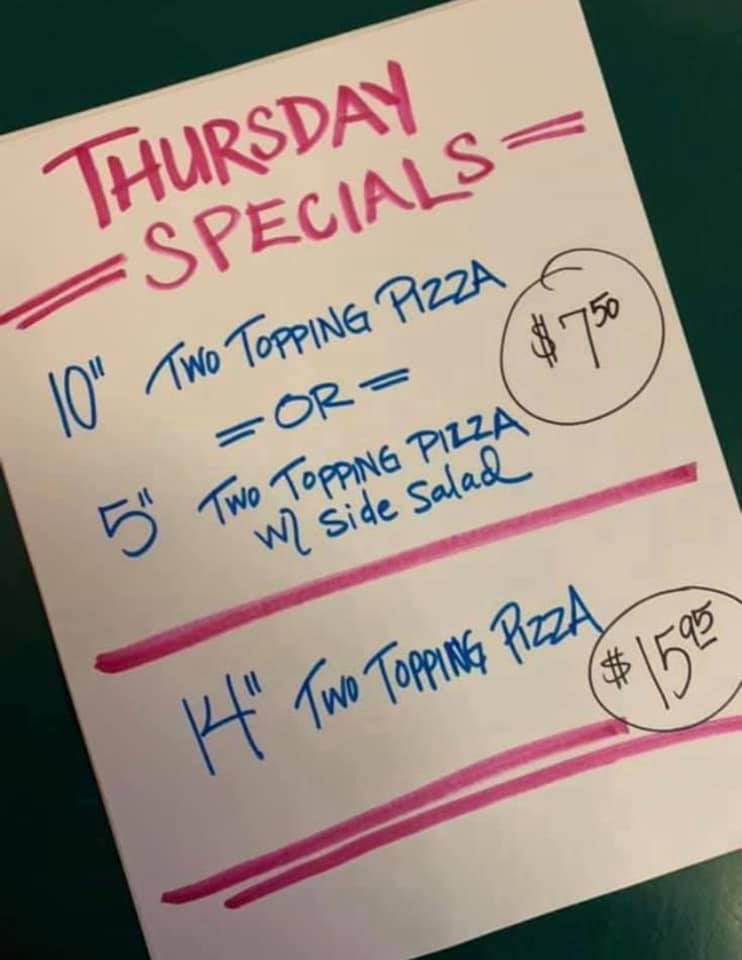 THURSDAY
SPECIALS
10" TWO TOPPING PIZZA $7.50
= OR =
5" TWO TOPPING PIZZA
w/ Side Salad
14" TWO TOPPING PIZZA $15.95